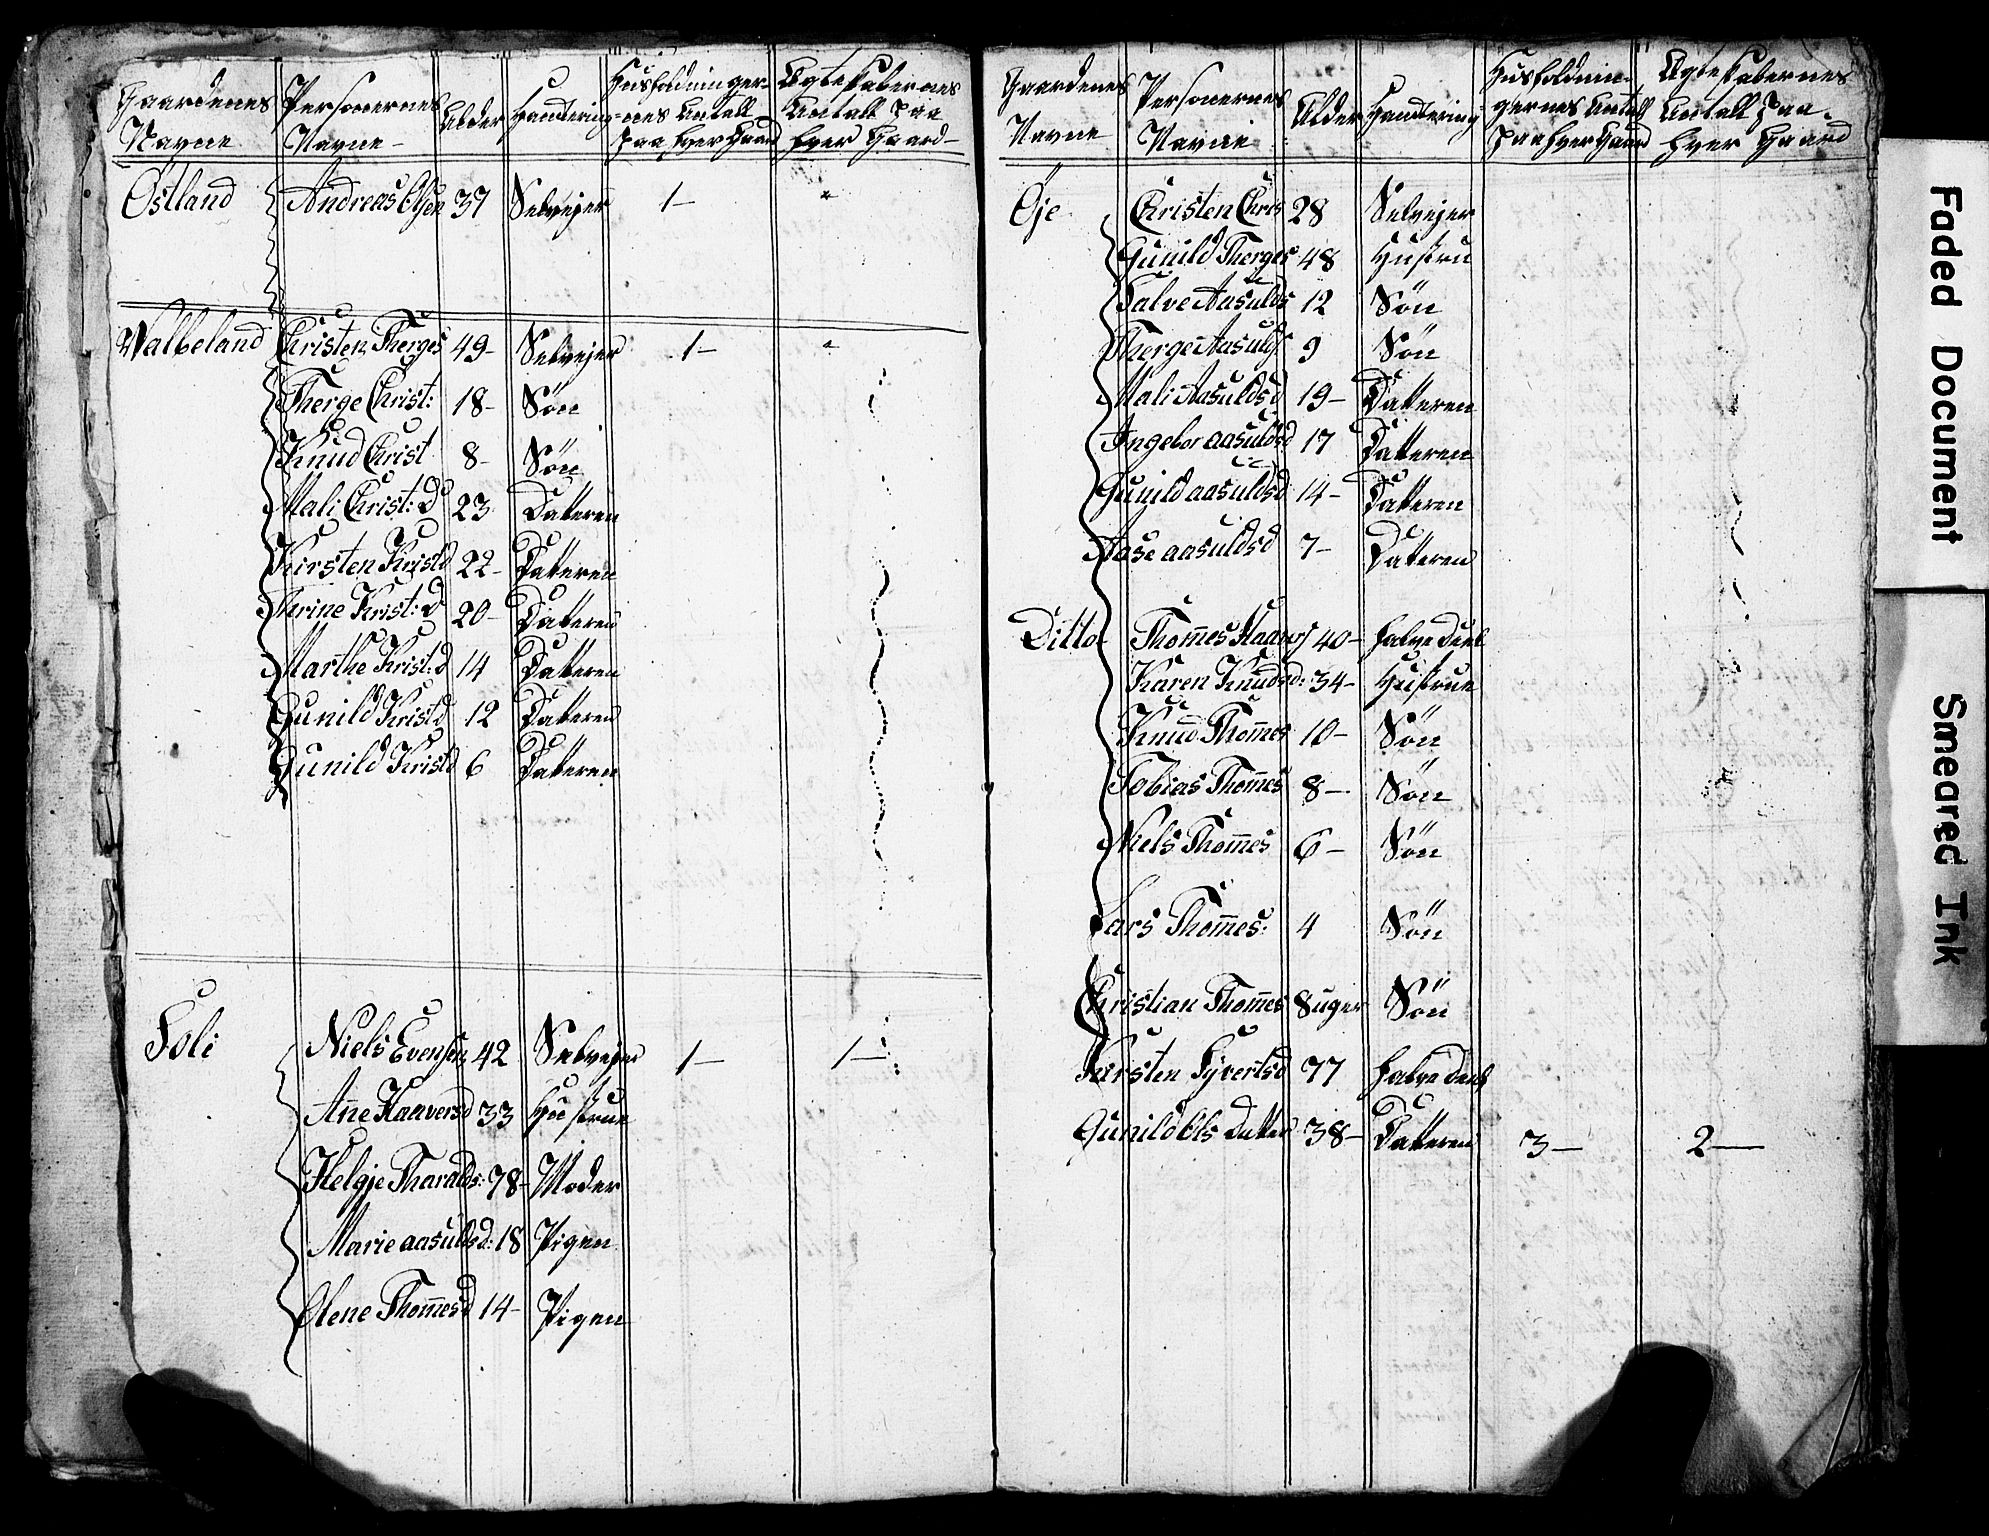 Gaardenes Navne | Personernes Navne - | Alder | Handtering | Husholdninger-nes Antall paa hver Gaard | Ægteskabernes Antall paa hver Gaard -
Østland | Andreas Olsen | 37 | Selvejer | 1 - | "
Walbeland | Christen Therges | 49 - | Selvejer | 1 - | "
Therge Christ: | 18 - | Søn
Knud Christ | 8 - | Søn
Mali Christ: d | 23 | Datteren
Kirsten Kristd | 22 - | Datteren
Therine Krist: d | 20 - | Datteren
Marthe Krist: d | 14 | Datteren
Gunild Kristd | 12 | Datteren
Gunild Kristd | 6 | Datteren
Foli | Niels Evensen | 42 | Selvejer | 1 - | 1 -
Ane Haaversd | 33 | Hustrue
Helgje Tharalds: | 78 - | Moder
Marie aasuldsd: | 18 | Pigen
Olene Thomesd | 14 - | Pigen
Gaardenes Navne | Personernes Navne | Alder | Handtering | Husholdnin-gernes Antall paa hver Gaard | Ægteskabernes Antall paa hver Gaard
Øje | Christen Chris | 28 | Selvejer
Gunild Therges | 48 | Hustru
Salve Aasulds | 12 | Søn
Therge Aasulds | 9 | Søn
Mali Aasuldsd | 19 - | Datteren
Ingebor aasuldsd | 17 | Datteren
Gunild aasuldsd | 14 - | Datteren
Aase aasuldsd | 7 - | Datteren
Ditto | Thomes Haavers | 40 - | halve Deel
Karen Knudsd: | 34 - | Hustrue
Knud Thomes | 10 - | Søn
Tobias Thomes | 8 - | Søn
Niels Thomes | 6 - | Søn
Lars Thomes: | 4 | Søn
Christian Thomes | 8 uger | Søn
Kirsten Syvertsd | 77 | halve Deel
Gunild Ols datter | 38 - | Datteren | 3 - | 2 -
Faded Document
Smeared Ink